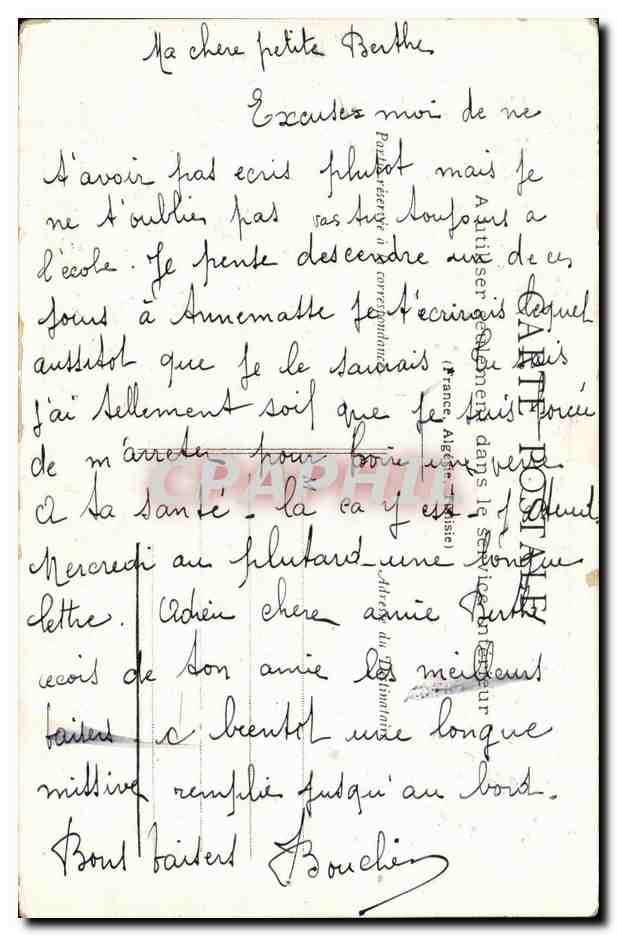 Ma chere petite Berthe
Excusez moi de ne
t'avoir pas ecris plutot mais je
ne t'oublie pas vas tu toujours a
l'école. Je pense descendre un de ces
jours à Annemasse je t'écrirais lequel
aussitot que je le saurais Tu sais
j'ai tellement soif que je suis forcée
de m'arreter pour boire une verre
A ta santé - là ça y est -
Mercredi au plutard - une longue
lettre. Adieu chere amie Berthe
recois de ton amie les meilleurs
baisers a bientot une longue
missive remplie jusqu'au bord.
Bons baisers Bouchē
CARTE POSTALE
A utiser seulement dans le service intérieur
(France, Algérie, Tunisie)
Partie réservée à la correspondance
Adresse du Destinataire
CPAPHIL